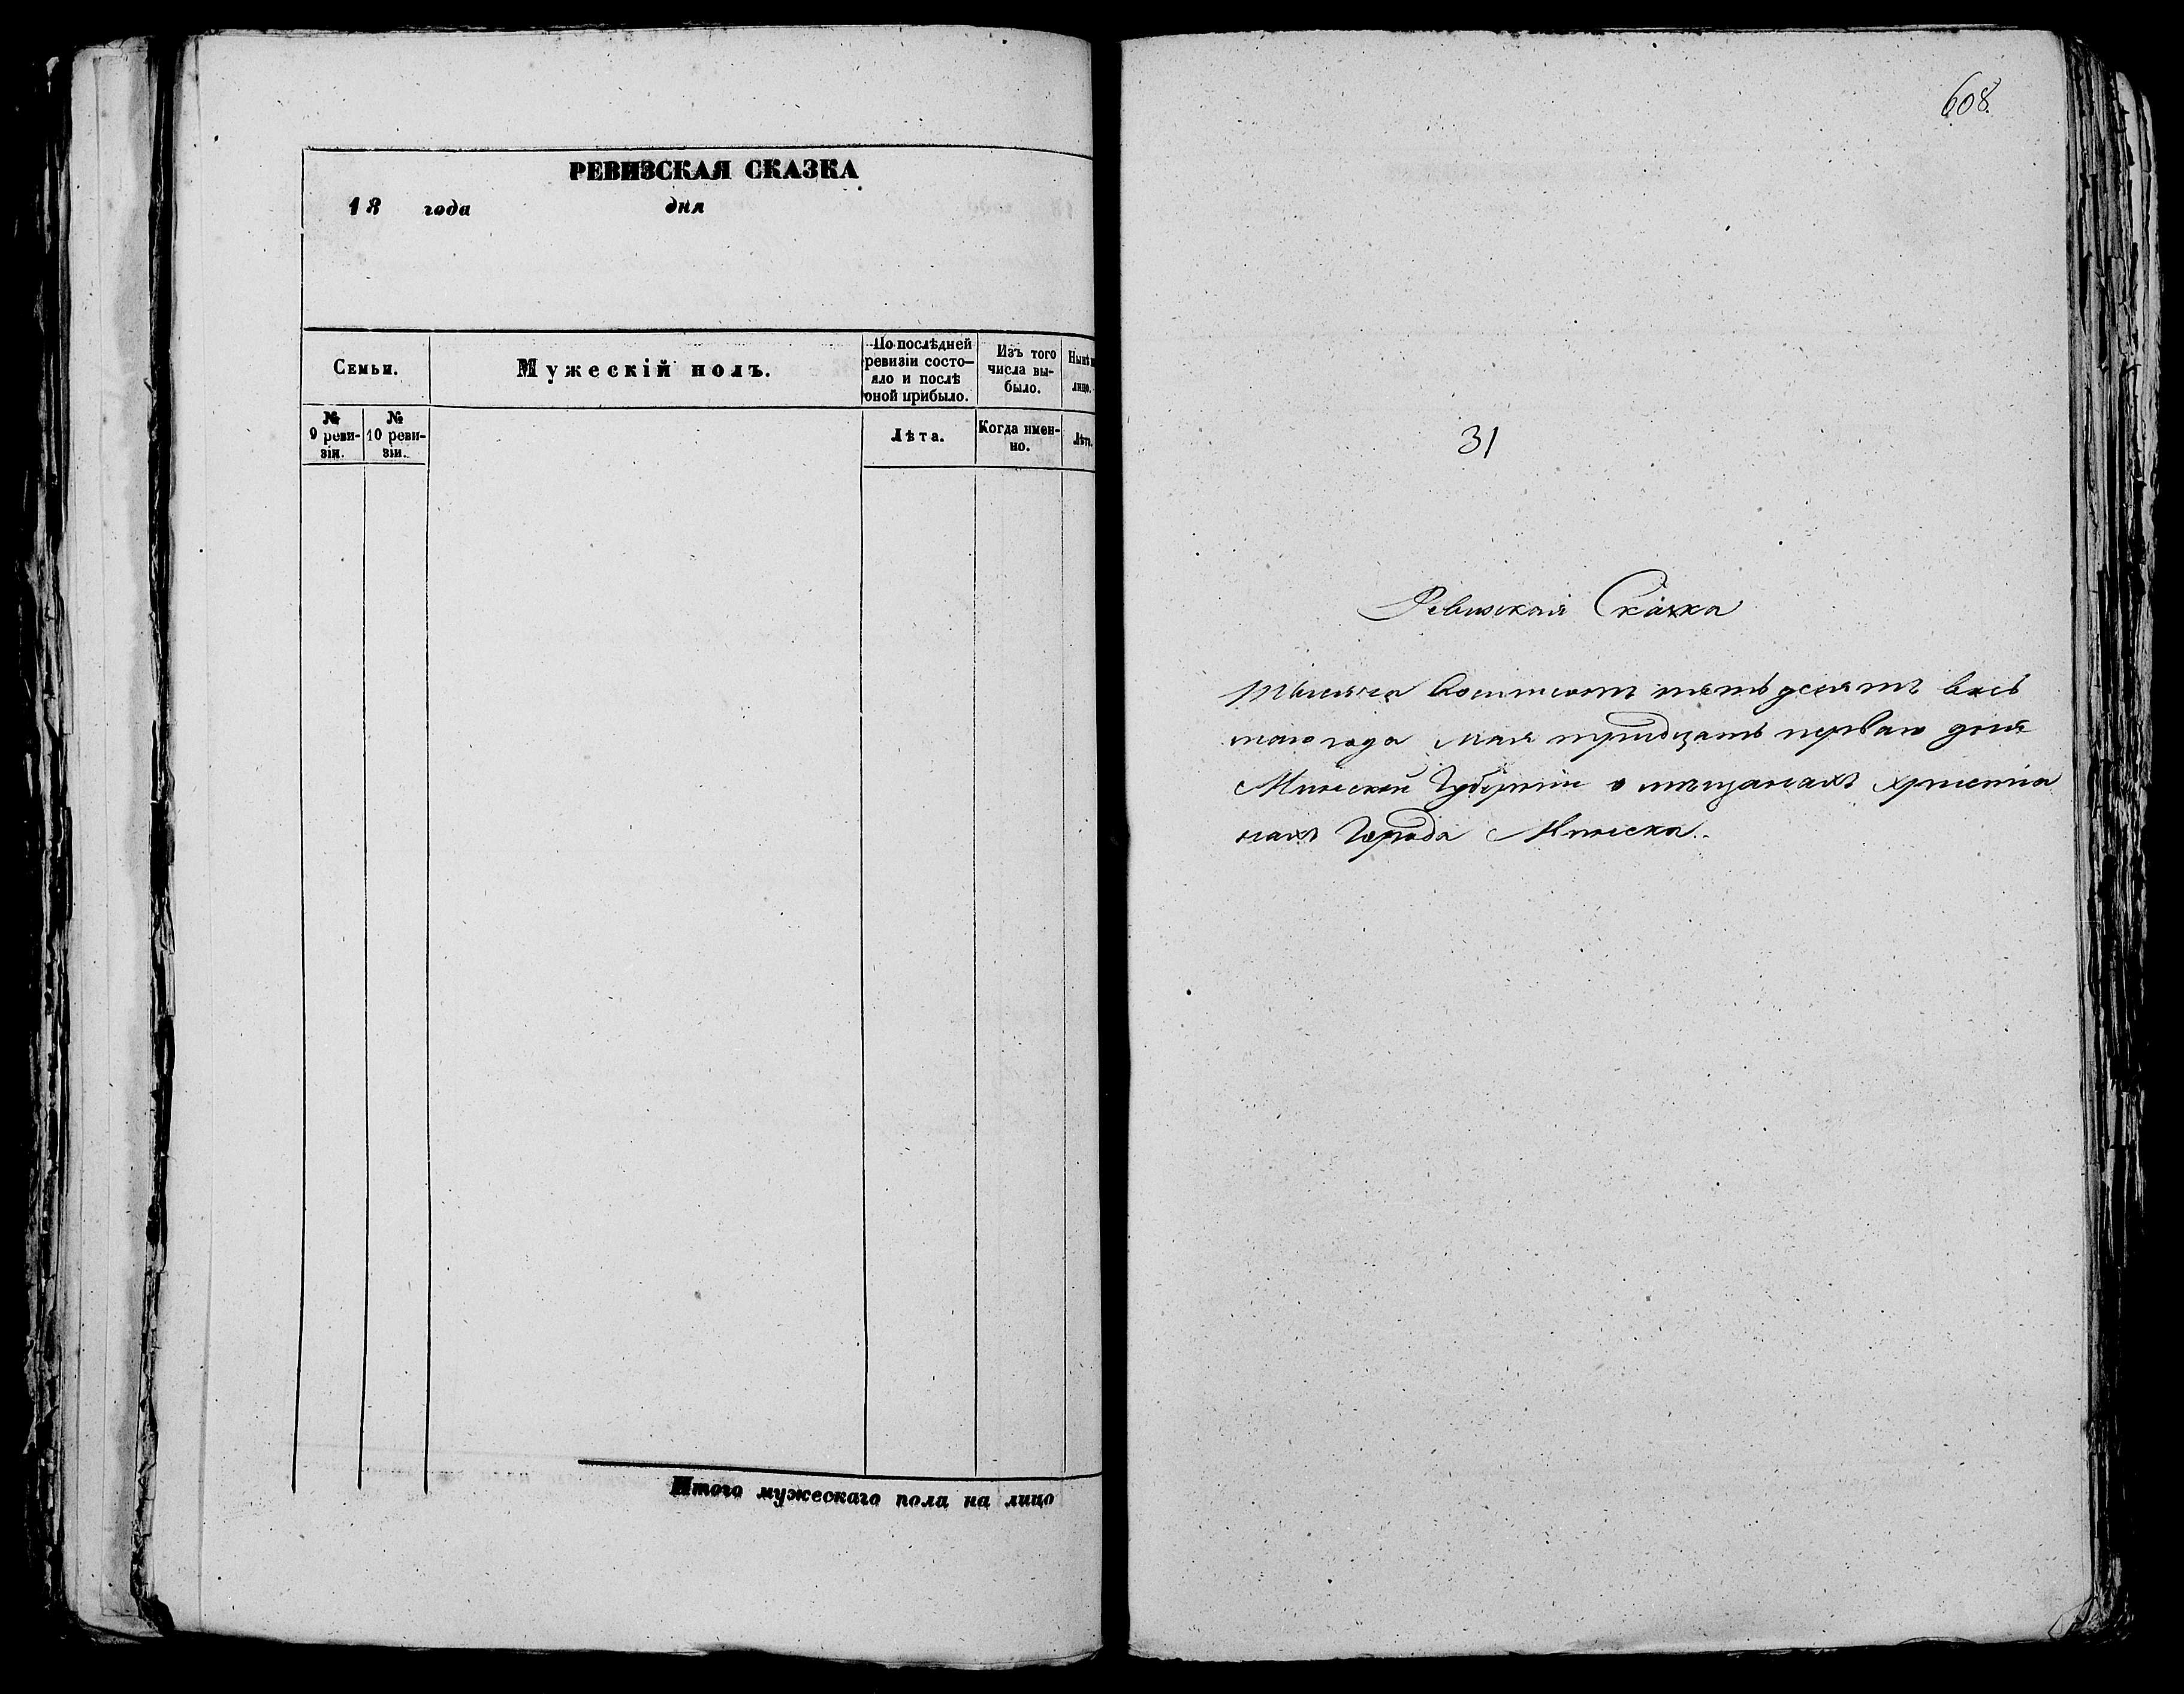 РЕВИЗСКАЯ СКАЗКА
18 года дня
Семьи.
Мужескій полъ.
По послѣдней
ревизіи состо-
яло и послѣ
оной прибыло.
Изъ того
числа вы-
было.
Нынѣ
лицо.
№
9 реви-
зіи.
№
10 реви-
зіи.
Лѣта.
Когда имен-
но.
Лѣта.
Итого мужескаго пола на лицо
608
31
Ревизская Сказка
тысяча восемьсотъ пятьдесятъ вось
маго года Мая тридцать перваго дня
Минской Губерніи о мѣщанахъ христіа
нахъ Города Минска.